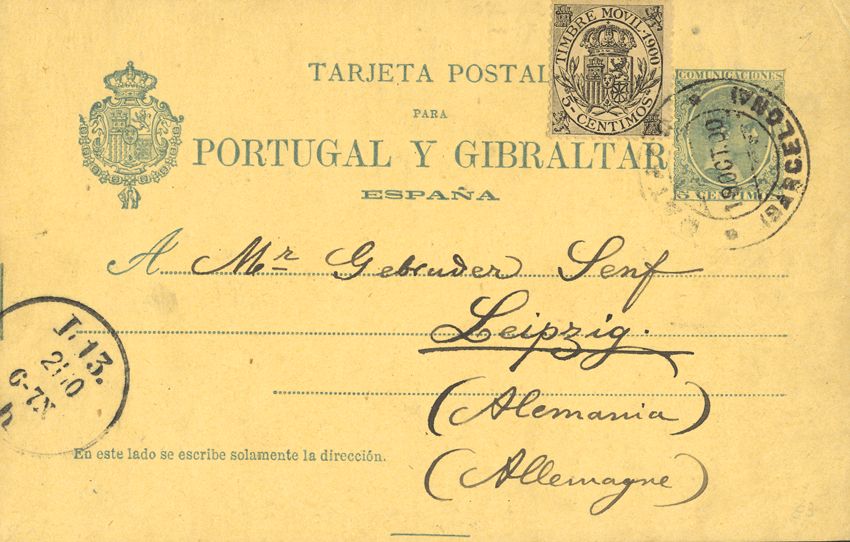 TIMBRE MOVIL-1900
5-CENTIMOS
TARJETA POSTAL
COMUNICACIONES
PARA
PORTUGAL Y GIBRALTAR
5 CENTIMO
ESPAÑA
(BARCELONA)
18 OCT 00
A Mr Gebruder Senf
Leipzig.
(Alemania)
(Allemagne)
T. 13.
6-7N
En este lado se escribe solamente la dirección.